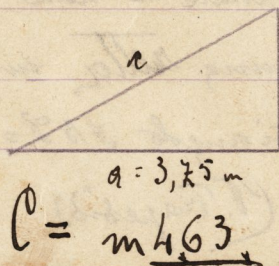 c
a = 3,75 m
C = m 463